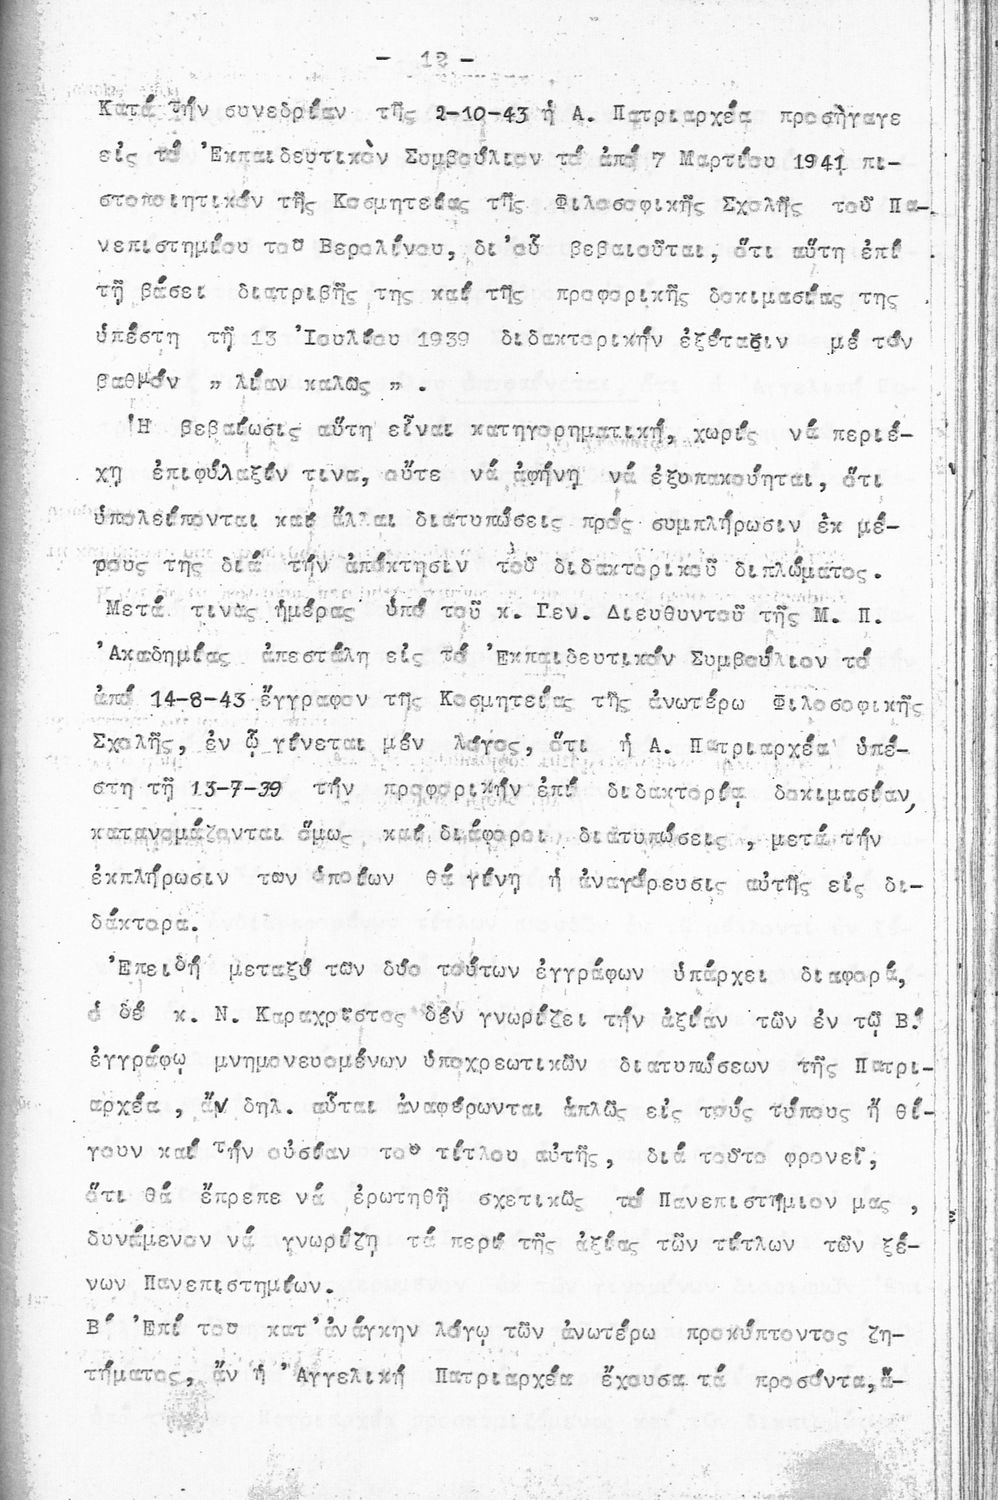 - 12 -
Κατά τήν συνεδρίαν τῆς 2-10-43 ἡ Α. Πατριαρχέα προσήγαγε
εἰς τό Ἐκπαιδευτικὸν Συμβούλιον τό ἀπό 7 Μαρτίου 1941 πι-
στοποιητικόν τῆς Κοσμητείας τῆς Φιλοσοφικῆς Σχολῆς τοῦ Πα-
νεπιστημίου του Βερολίνου, δι'οὗ βεβαιοῦται, ὅτι αὕτη ἐπί
τῇ βάσει διατριβῆς της καί τῆς προφορικῆς δοκιμασίας της
ὑπέστη τῇ 13 Ἰουλίου 1939 διδακτορικήν ἐξέτασιν μέ τόν
βαθμόν " λίαν καλῶς " .
Ἡ βεβαίωσις αὕτη εἶναι κατηγορηματική, χωρίς νά περιέ-
χῃ ἐπιφύλαξίν τινα, οὔτε νά ἀφήνῃ νά ἐξυπακούηται, ὅτι
ὑπολείπονται καί ἄλλαι διατυπώσεις πρός συμπλήρωσιν ἐκ μέ-
ρους της διά τήν ἀπόκτησιν τοῦ διδακτορικοῦ διπλώματος.
Μετά τινας ἡμέρας ὑπό τοῦ κ. Γεν. Διευθυντοῦ τῆς Μ. Π.
Ἀκαδημίας ἀπεστάλη εἰς τό Ἐκπαιδευτικόν Συμβούλιον τό
ἀπό 14-8-43 ἔγγραφον τῆς Κοσμητείας τῆς ἀνωτέρω Φιλοσοφικῆς
Σχολῆς, ἐν ᾧ γίνεται μέν λόγος, ὅτι ἡ Α. Πατριαρχέα ὑπέ-
στη τῇ 13-7-39 τήν προφορικήν ἐπί διδακτορίᾳ δοκιμασίαν,
κατανομάζονται ὅμως καί διάφοροι διατυπώσεις , μετά τήν
ἐκπλήρωσιν των ὁποίων θά γίνῃ ἡ ἀναγόρευσις αὐτῆς εἰς δι-
δάκτορα.
Ἐπειδή μεταξύ των δύο τούτων ἐγγράφων ὑπάρχει διαφορά,
ὁ δέ κ. Ν. Καραχρῖστος δέν γνωρίζει τήν ἀξίαν τῶν ἐν τῷ Β.'
ἐγγράφῳ μνημονευομένων ὑποχρεωτικῶν διατυπώσεων τῆς Πατρι-
αρχέα , ἄν δηλ. αὗται ἀναφέρωνται ἁπλῶς εἰς τούς τύπους ἤ θί-
γουν καί τήν οὐσίαν του τίτλου αὐτῆς, διά τοῦτο φρονεῖ,
ὅτι θά ἔπρεπε νά ἐρωτηθῇ σχετικῶς τό Πανεπιστήμιον μας ,
δυνάμενον νά γνωρίζῃ τά περί τῆς ἀξίας τῶν τίτλων τῶν ξέ-
νων Πανεπιστημίων.
Β' Ἐπί του κατ'ἀνάγκην λόγῳ τῶν ἀνωτέρω προκύπτοντος ζη-
τήματος, ἄν ἡ Ἀγγελική Πατριαρχέα ἔχουσα τά προσόντα,ἅ-